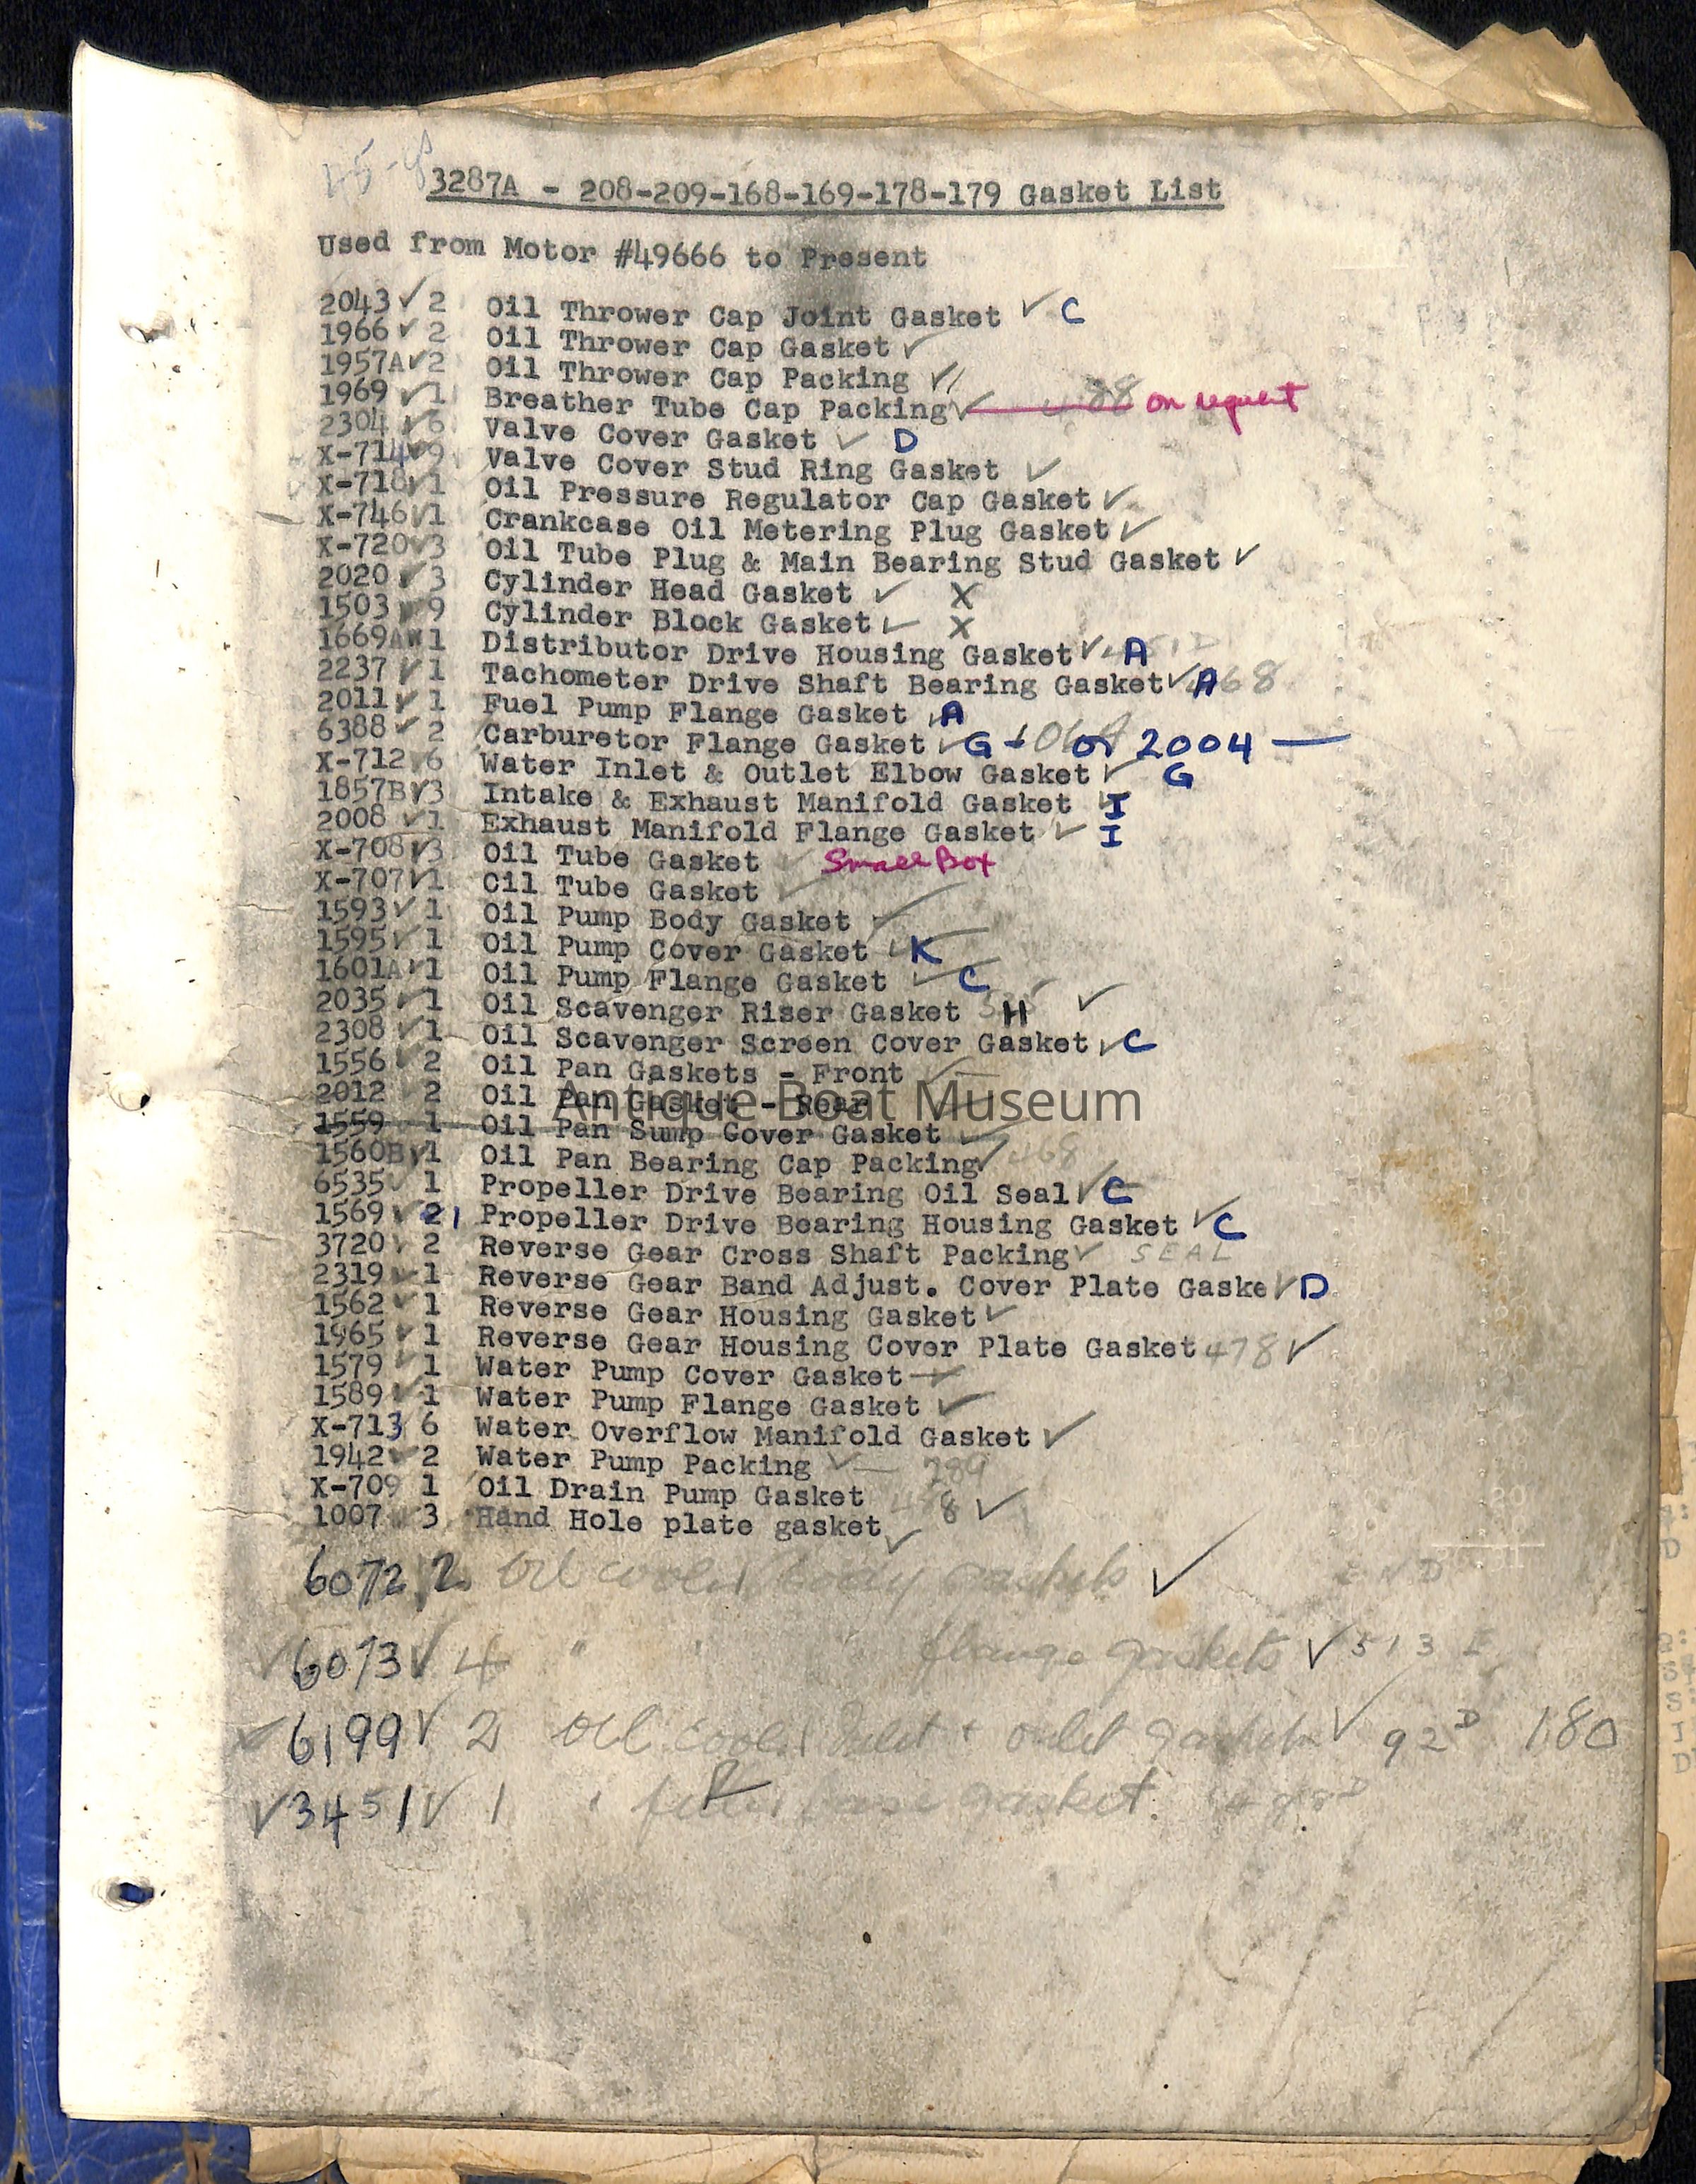 3287A - 208-209-168-169-178-179 Gasket List
Used from Motor #49666 to Present
2043 ✓ 2 Oil Thrower Cap Joint Gasket ✓ C
1966 ✓ 2 Oil Thrower Cap Gasket ✓
1957A ✓ 2 Oil Thrower Cap Packing ✓
1969 ✓ 1 Breather Tube Cap Packing ✓ 88 on request
2304 ✓ 6 Valve Cover Gasket ✓ D
X-714 ✓ 9 Valve Cover Stud Ring Gasket ✓
X-718 ✓ 1 Oil Pressure Regulator Cap Gasket ✓
X-746 ✓ 1 Crankcase Oil Metering Plug Gasket ✓
X-720 ✓ 3 Oil Tube Plug & Main Bearing Stud Gasket ✓
2020 ✓ 3 Cylinder Head Gasket ✓ X
1503 ✓ 9 Cylinder Block Gasket ✓ X
1669AW 1 Distributor Drive Housing Gasket ✓ A
2237 ✓ 1 Tachometer Drive Shaft Bearing Gasket ✓ A 68
2011 ✓ 1 Fuel Pump Flange Gasket ✓ A
6388 ✓ 2 Carburetor Flange Gasket ✓ G - or 2004 —
X-712 6 Water Inlet & Outlet Elbow Gasket ✓ G
1857B ✓ 3 Intake & Exhaust Manifold Gasket ✓ I
2008 ✓ 1 Exhaust Manifold Flange Gasket ✓ I
X-708 ✓ 3 Oil Tube Gasket ✓ Small Box
X-707 ✓ 1 Oil Tube Gasket ✓
1593 ✓ 1 Oil Pump Body Gasket ✓
1595 ✓ 1 Oil Pump Cover Gasket ✓ K
1601A ✓ 1 Oil Pump Flange Gasket ✓ C
2035 ✓ 1 Oil Scavenger Riser Gasket H ✓
2308 ✓ 1 Oil Scavenger Screen Cover Gasket ✓ C
1556 ✓ 2 Oil Pan Gaskets - Front ✓
2012 ✓ 2 Oil Pan Gasket - Rear
Antique Boat Museum
1559 1 Oil Pan Sump Cover Gasket ✓
1560B ✓ 1 Oil Pan Bearing Cap Packing ✓ 468
6535 ✓ 1 Propeller Drive Bearing Oil Seal ✓ C
1569 ✓ 2 1 Propeller Drive Bearing Housing Gasket ✓ C
3720 ✓ 2 Reverse Gear Cross Shaft Packing ✓ SEAL
2319 ✓ 1 Reverse Gear Band Adjust. Cover Plate Gaske ✓ D
1562 ✓ 1 Reverse Gear Housing Gasket ✓
1965 ✓ 1 Reverse Gear Housing Cover Plate Gasket 478 ✓
1579 ✓ 1 Water Pump Cover Gasket ✓
1589 ✓ 1 Water Pump Flange Gasket ✓
X-713 6 Water Overflow Manifold Gasket ✓
1942 ✓ 2 Water Pump Packing ✓ — 789
X-709 1 Oil Drain Pump Gasket ✓
1007 3 Hand Hole plate gasket ✓
6072 2 Oil cooler body gaskets ✓
✓ 6073 ✓ 4 " " " flange gaskets ✓ 513
✓ 6199 ✓ 2 Oil cooler inlet + outlet gaskets ✓ 92D 180
✓ 3451 ✓ 1 " filter base gasket.